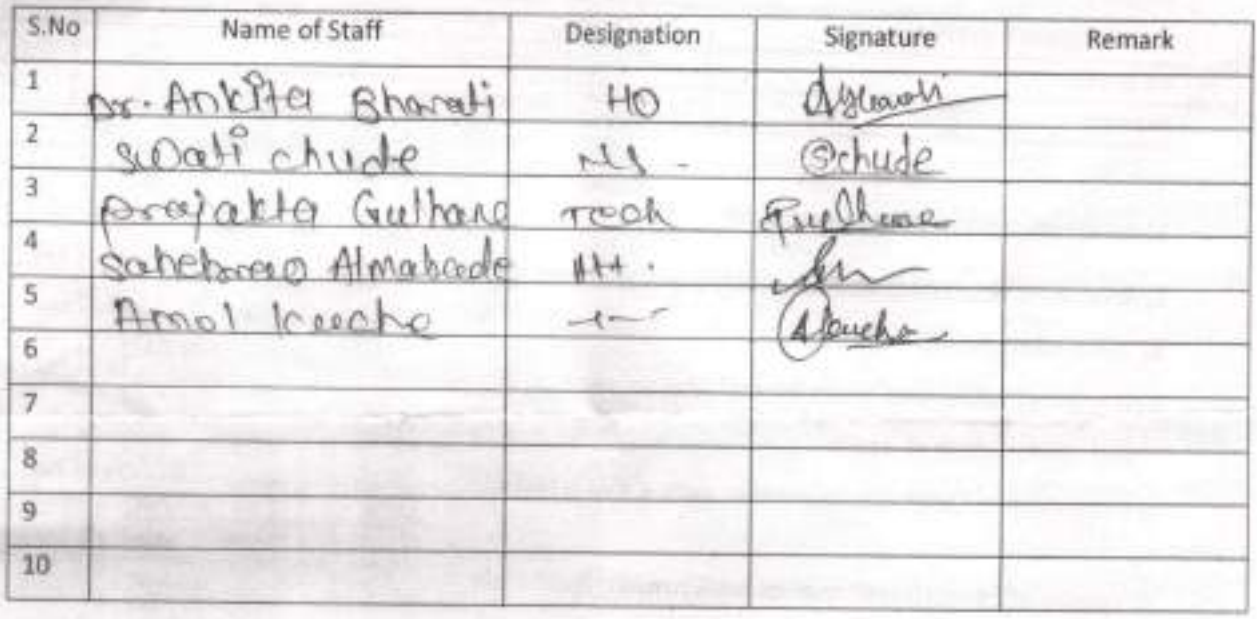 S.No Name of Staff Designation Signature Remark
1 Dr. Ankita Bharati HO
2 Swati chude Schude
3 Prajakta Gulhane Tech Gulhane
4 Sahebrao Almabade
5 Amol
6
7
8
9
10